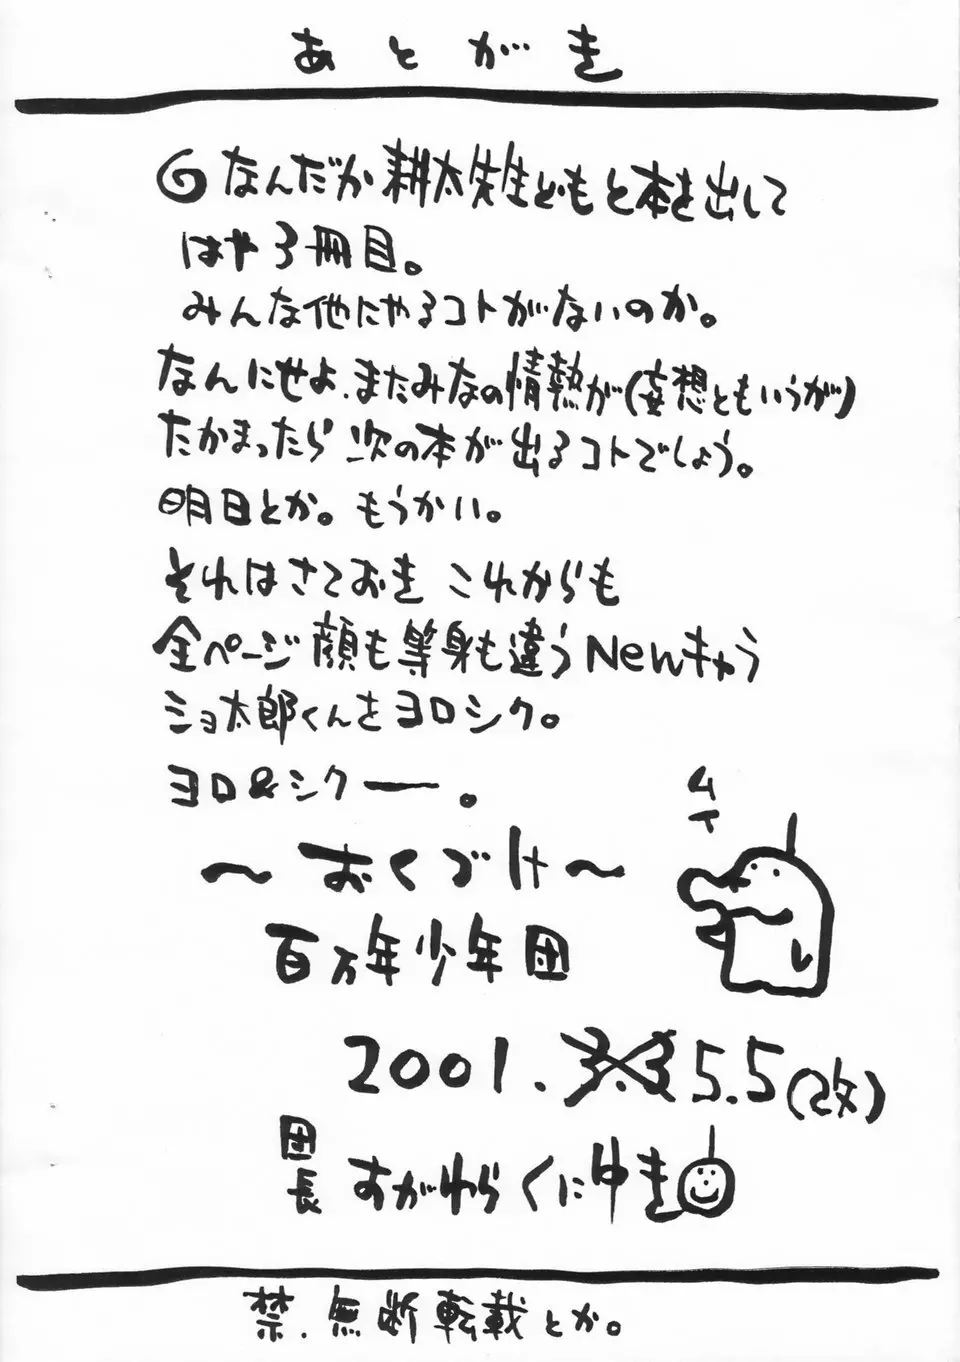 あとがき
なんだか耕太先生どもと本を出して
はや3冊目。
みんな他にやるコトがないのか。
なんにせよ、またみなの情熱が(妄想ともいうが)
たかまったら次の本が出るコトでしょう。
明日とか。もうかい。
それはさておき これからも
全ページ顔も等身も違うNewキャラ
ショ太郎くんをヨロシク。
ヨロ&シクー。
〜おくづけ〜
百万年少年団
2001.3.3 5.5(改)
団長 すがわらくにゆき
禁.無断転載とか。